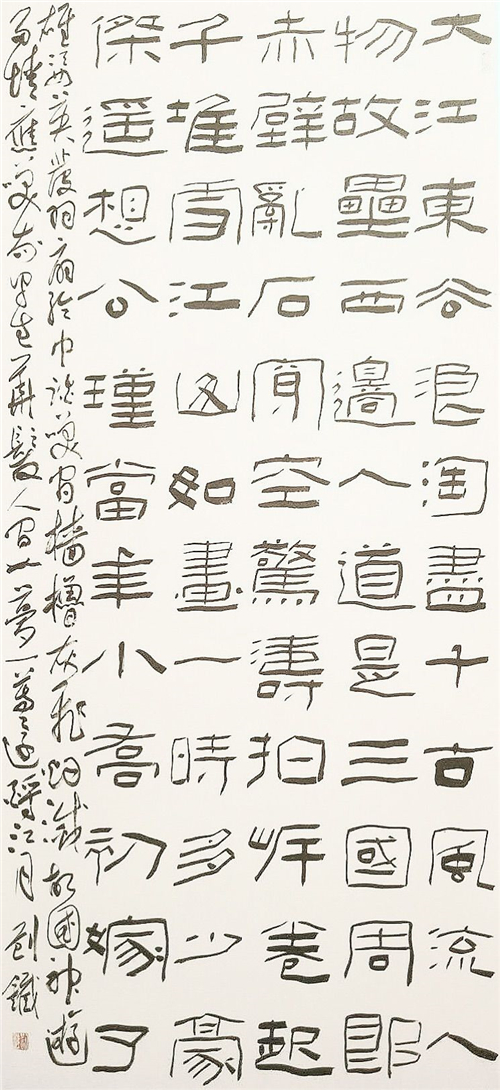 大江東去浪淘盡千古風流人
物故壘西邊人道是三國周郎
赤壁亂石穿空驚濤拍岸卷起
千堆雪江山如畫一時多少豪
傑遥想公瑾當年小喬初嫁了
雄姿英發羽扇綸巾談笑間檣櫓灰飛烟滅故國神遊
多情應笑我早生華髮人間如夢一尊還酹江月 刘鐵